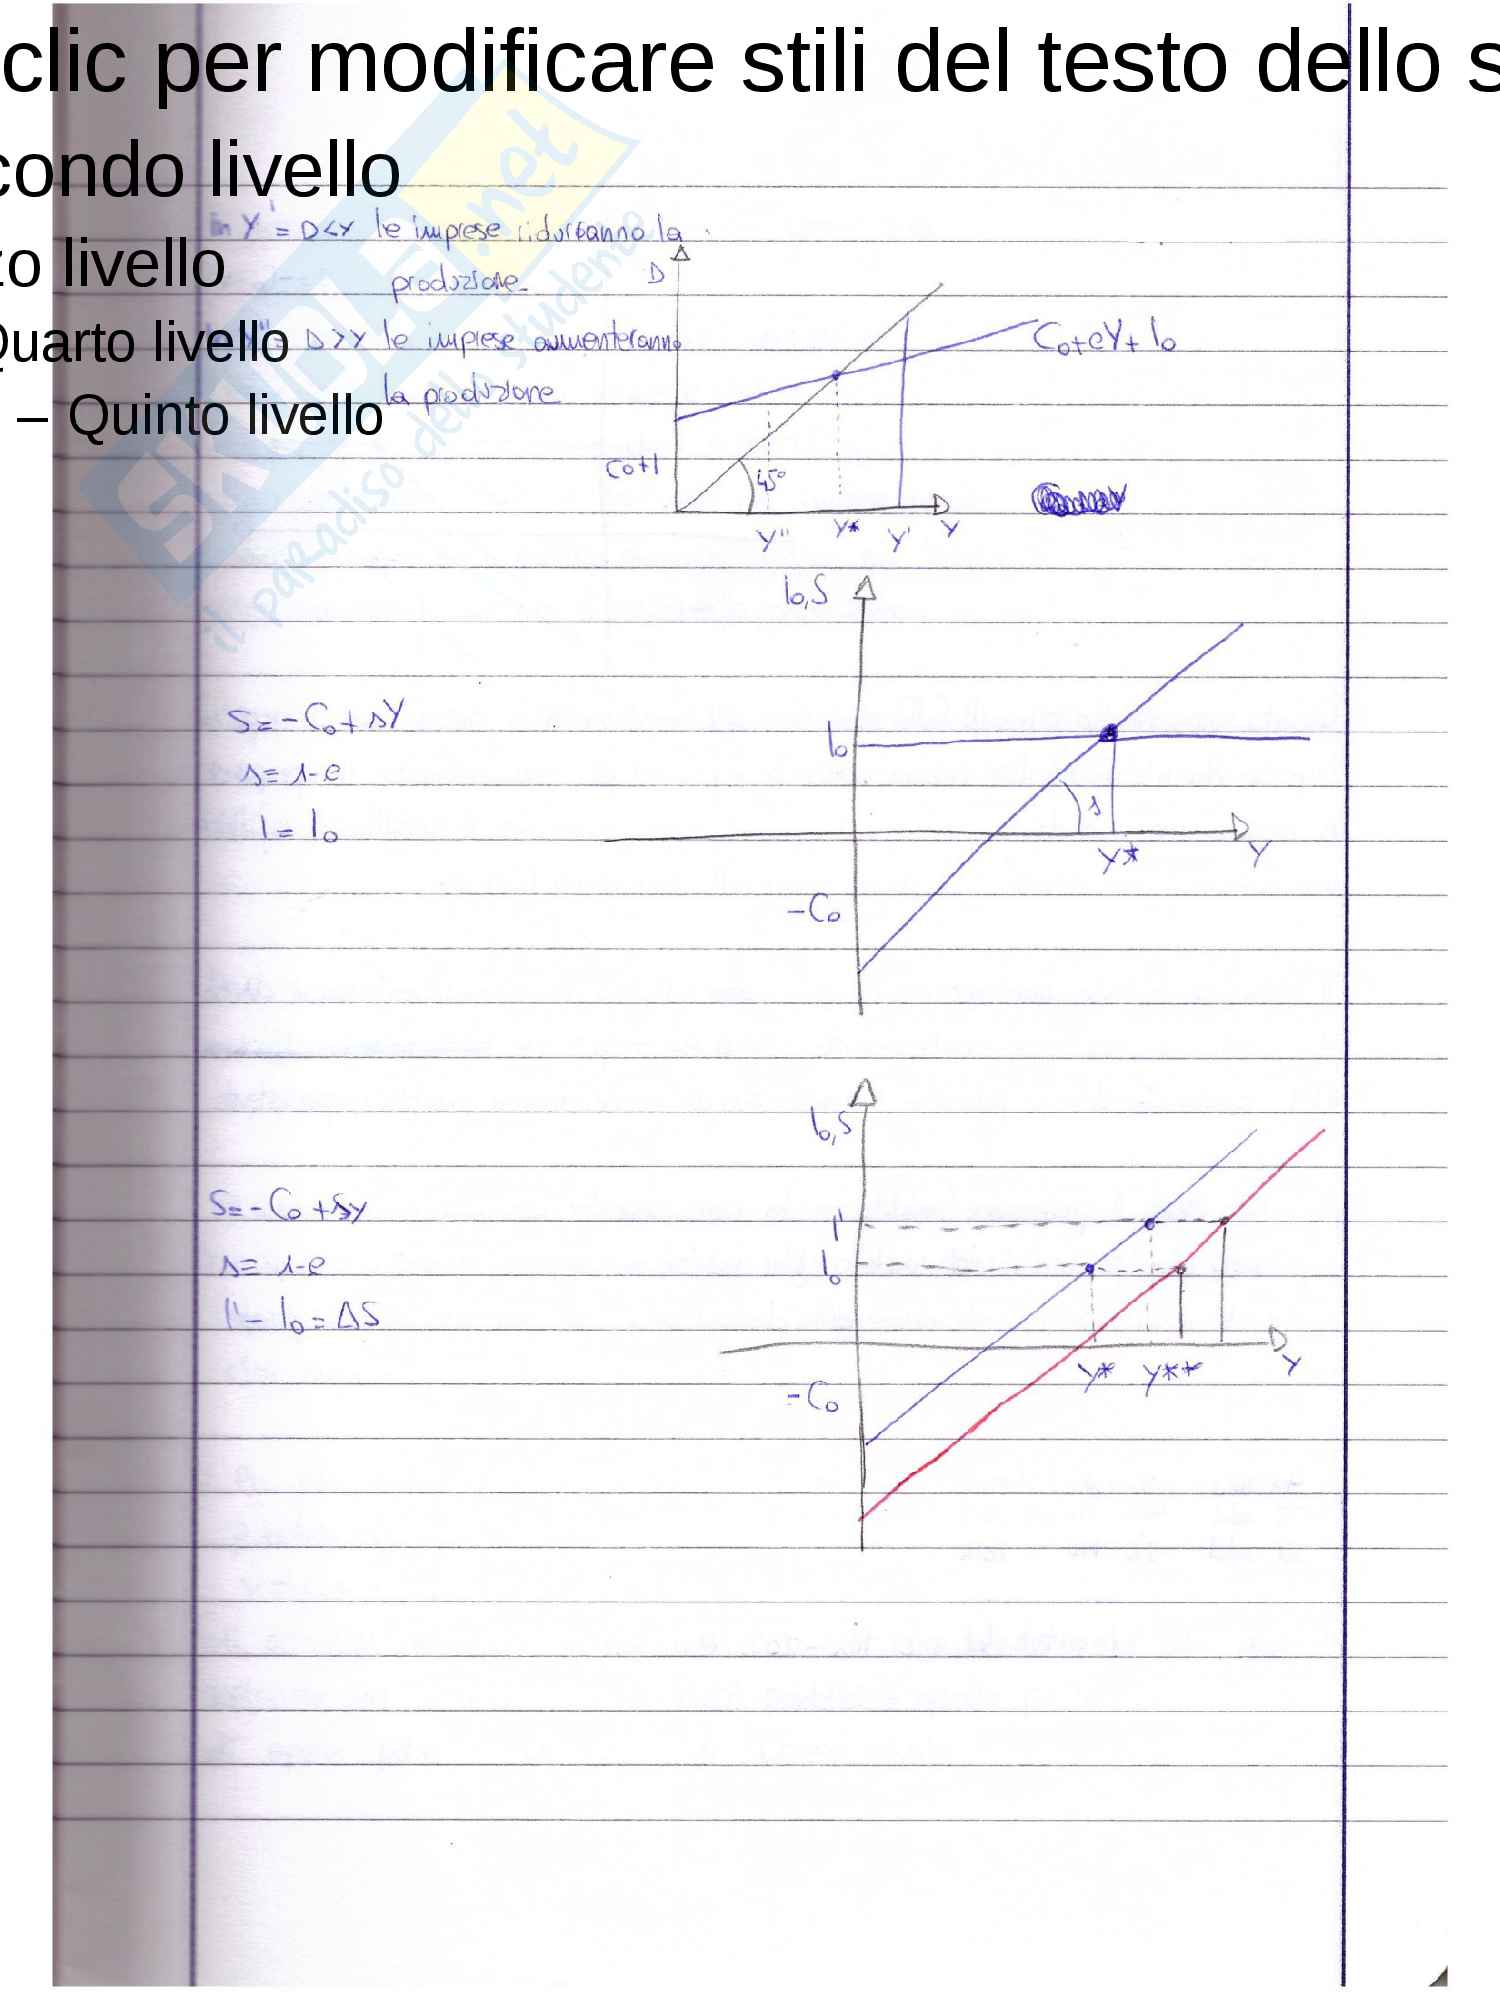 clic per modificare stili del testo dello s
condo livello
zo livello
Quarto livello
– Quinto livello
SKUOLA.net
il paradiso dello studente
in Y' = D<Y le imprese ridurranno la
produzione
Y'' = D>Y le imprese aumenteranno
la produzione
D
C₀+cY+I₀
C₀+I
45°
Y'' Y* Y' Y
I₀,S
S=-C₀+sY
s=1-c
I=I₀
I₀
s
Y* Y
-C₀
I₀,S
S=-C₀+sY
s=1-c
I'-I₀=ΔS
I'
I₀
Y* Y** Y
-C₀